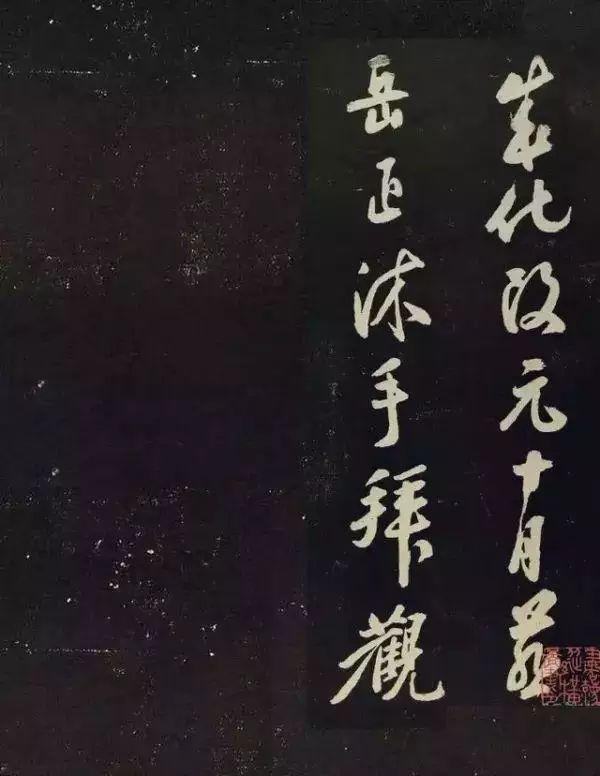 成化改元十月燕
岳正沐手拜觀